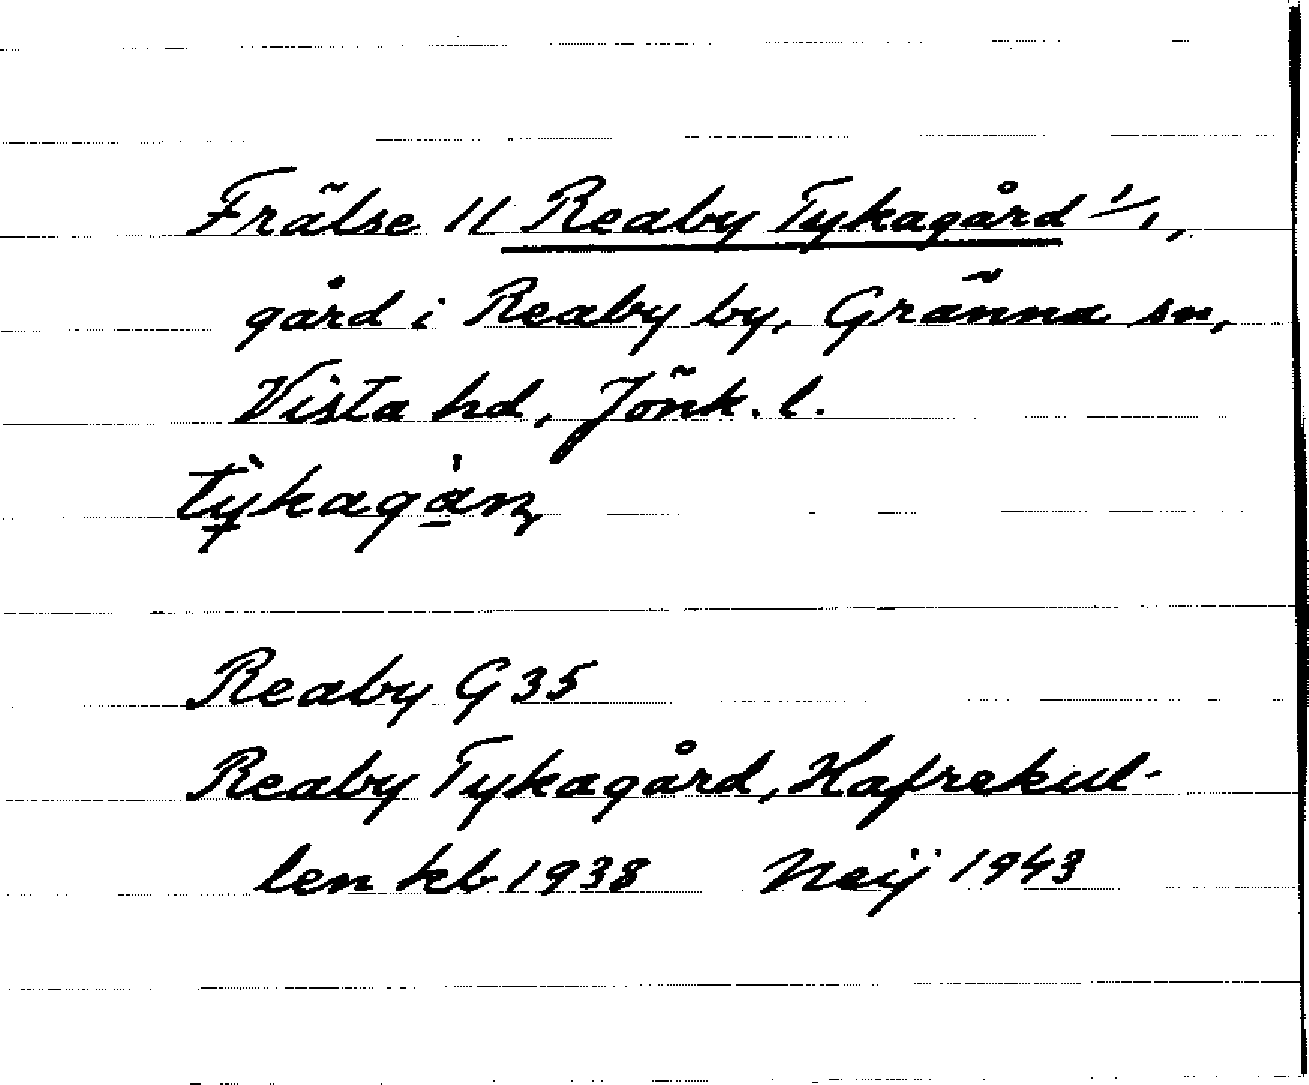 Frälse 11 Reaby Tykagård 1/1,
gård i Reaby by, Gränna sn,
Vista hd, Jönk. l.
Reaby G 35
Reaby Tykagård, Hafrekul-
len kb 1938 Neij 1943